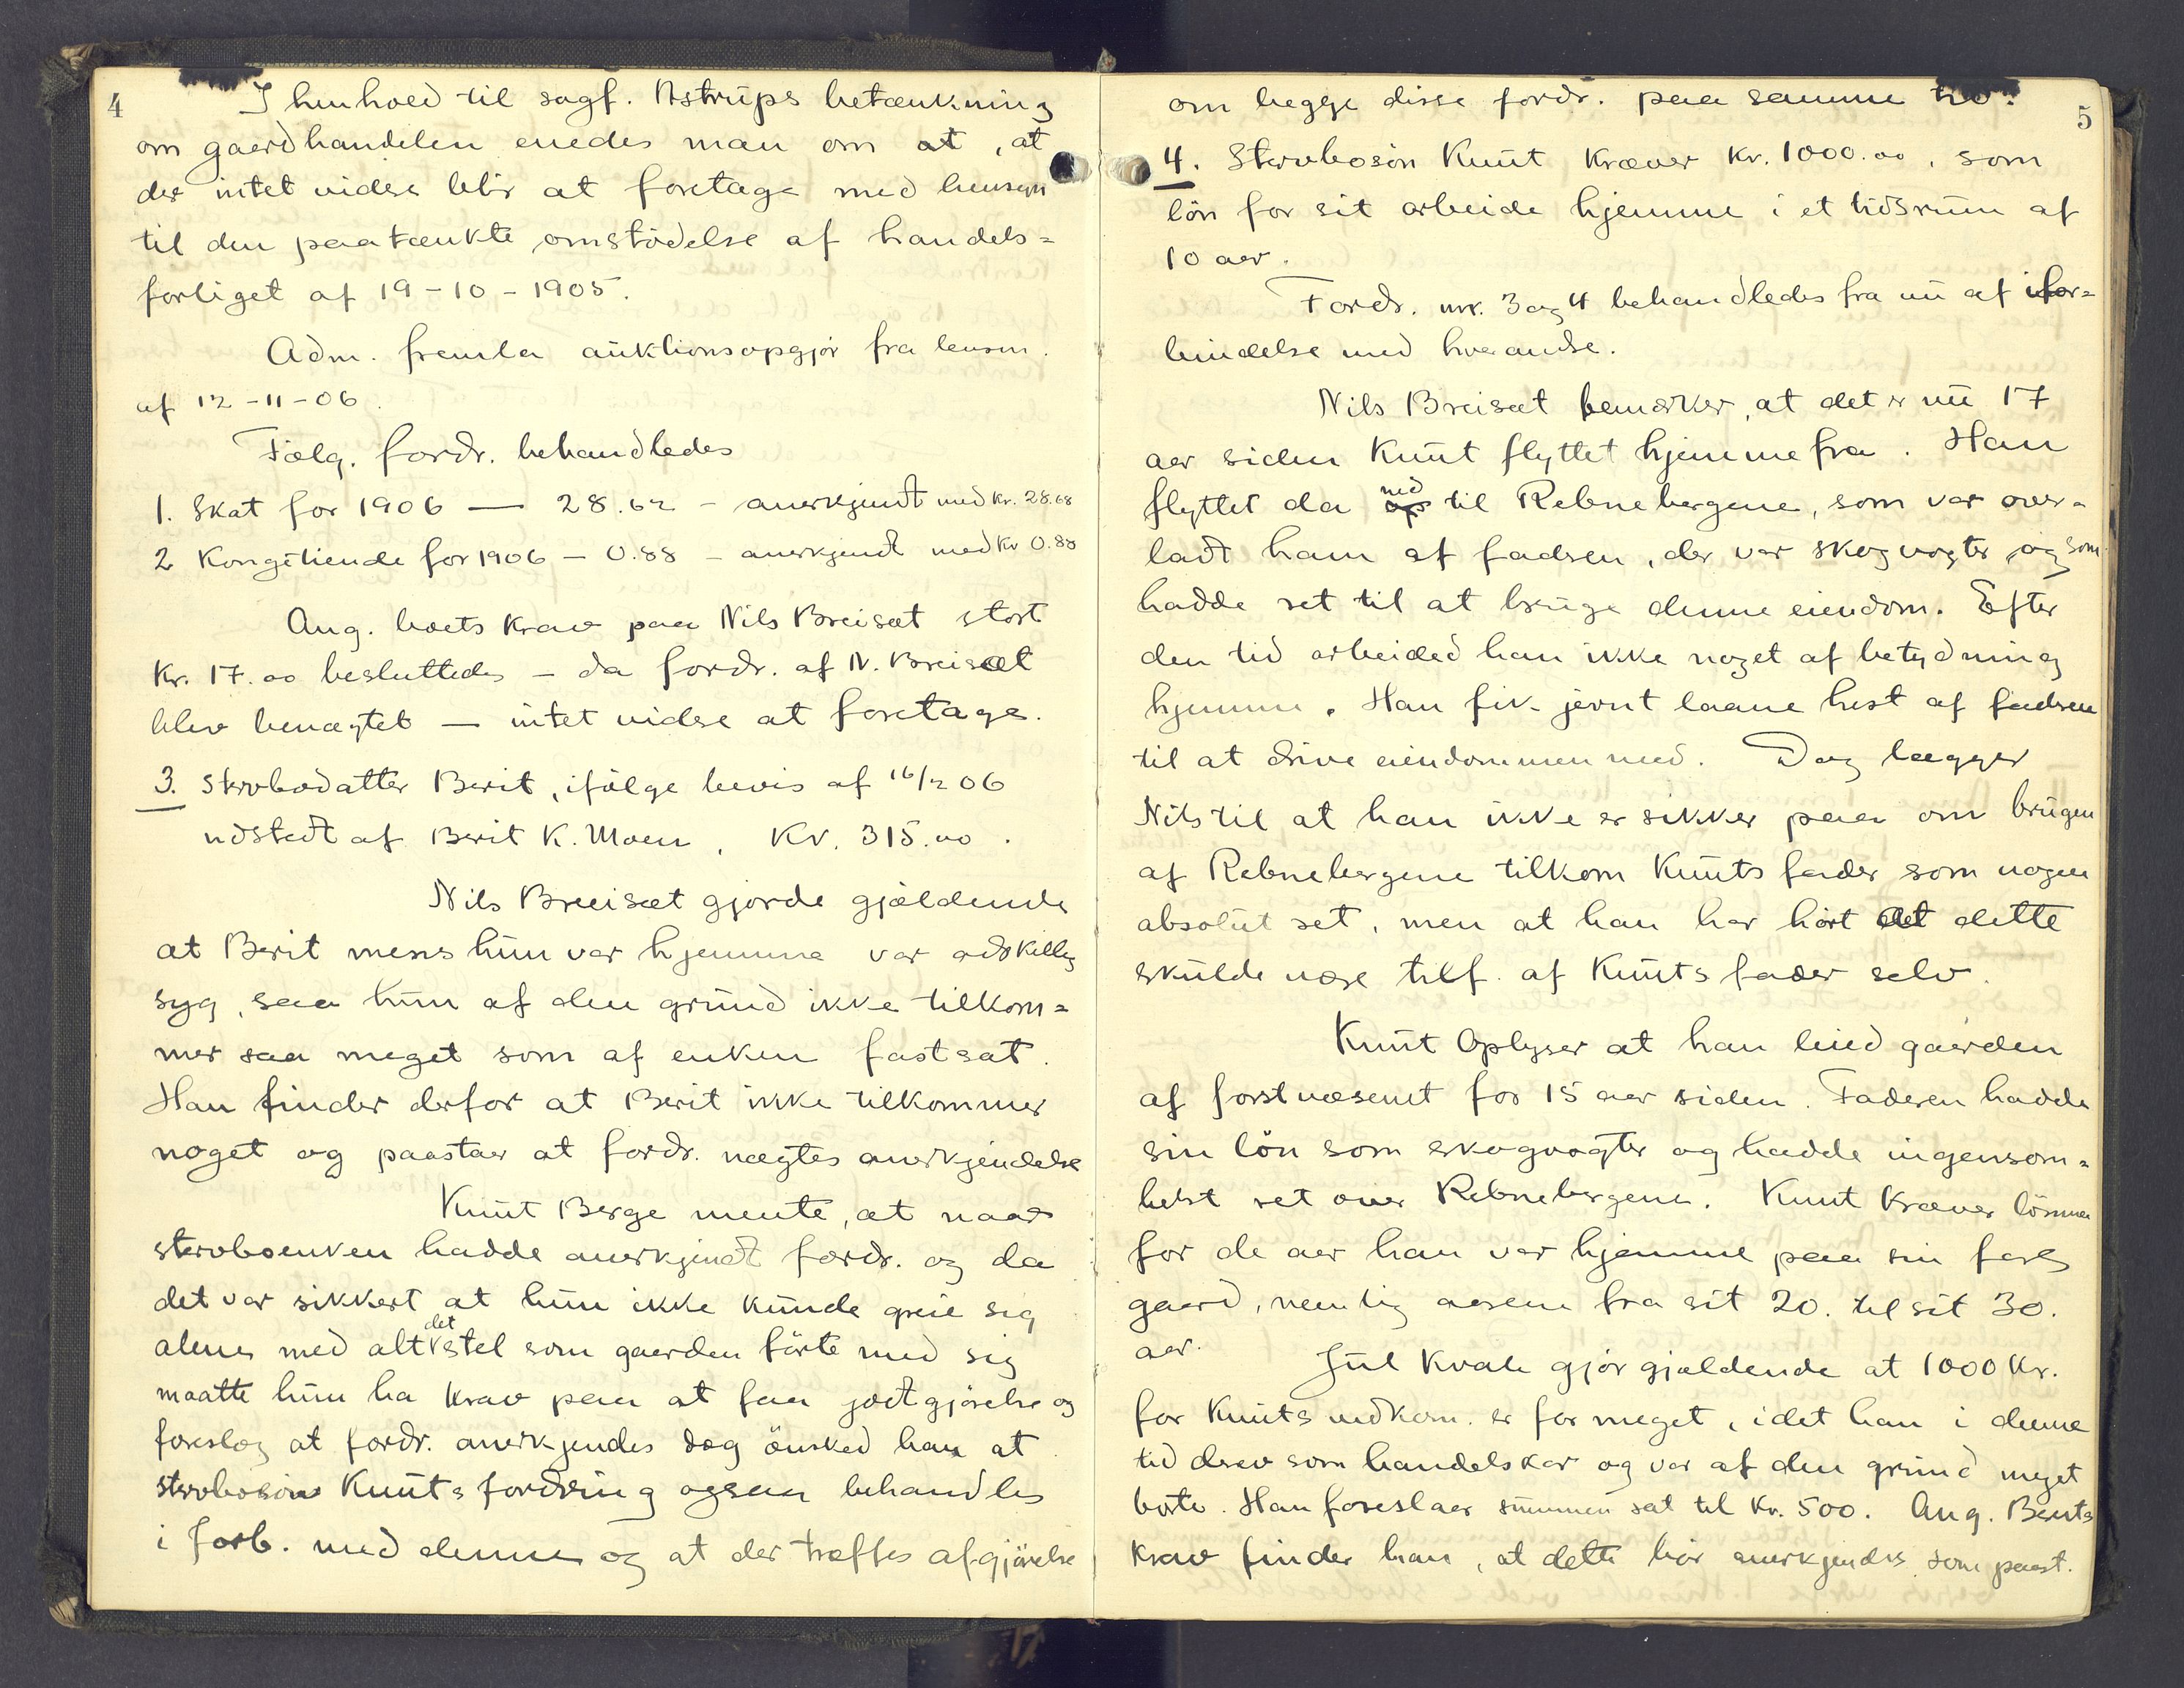 4
I henhold til sagf. Astrups betænkning
om gaardhandelen enedes man om at, at
der intet videre blir at foretage med hensyn
til den paatænkte omstödelse af handels=
forliget af 19-10-1905.
Adm. fremla auktionsopgjör fra lensm.
af 12-11-06.
Følg. fordr. behandledes
1. Skat for 1906 — 28.62 - anerkjendt med kr. 28.68
2 Kongetiende for 1906 — 0.88 - anerkjendt med kr 0.88
Ang. boets krav paa Nils Breisæt stort
Kr. 17.00 besluttedes - da fordr. af N. Breisæt
blev benægtet — intet videre at foretage.
3. Stervbodatter Berit, ifölge bevis af 16/2 06
udstedt af Berit K. Moen, Kr. 315.00.
Nils Breisæt gjorde gjældende
at Berit mens hun var hjemme var adskillig
syg, saa hun af den grund ikke tilkom=
mer saa meget som af enken fastsat.
Han finder derfor at Berit ikke tilkommer
noget og paastaar at fordr. nægtes anerkjendelse
Knut Berge mente, at naar
stervboenken hadde anerkjendt fordr. og da
det var sikkert at hun ikke kunde greie sig
alene med alt det stel som gaarden förte med sig
maatte hun ha krav paa at faa godtgjörelse og
foreslog at fordr. anerkjendes dog önsked han at
stervbosön Knuts fordring ogsaa behandles
i forb. med denne og at der træffes afgjörelse
5
om begge disse fordr. paa samme tid.
4. Stervbosön Knut kræver kr. 1000.00, som
lön for sit arbeide hjemme i et tidsrum af
10 aar.
Fordr. nr. 3 og 4 behandledes fra nu af i for=
bindelse med hverandre.
Nils Breisæt bemærker, at det er nu 17
aar siden Knut flyttet hjemmefra. Han
flyttet da op ned til Rebnebergene, som var over-
ladt ham af faderen, der var skogvogter og som
hadde ret til at bruge denne eiendom. Efter
den tid arbeided han ikke noget af betydning
hjemme. Han fik jevnt laane hest af faderen
til at drive eiendommen med. Dog lægger
Nils til at han ikke er sikker paa om brugen
af Rebnebergene tilkom Knuts fader som nogen
absolut ret, men at han har hört det dette
skulde være tilf. af Knuts fader selv.
Knut Oplyser at han leied gaarden
af forstvæsenet for 15 aar siden. Faderen hadde
sin lön som skogvogter og hadde ingensom=
helst ret over Rebnebergene. Knut kræver lönnen
for de aar han var hjemme paa sin fars
gaard, nemlig aarene fra sit 20. til sit 30.
aar.
Jul Kvale gjör gjældende at 1000 Kr.
for Knuts vedkom. er for meget, idet han i denne
tid drev som handelskar og var af den grund meget
borte. Han foreslaar summen sat til kr. 500. Ang. Berits
krav finder han, at dette bör anerkjendes som paast.